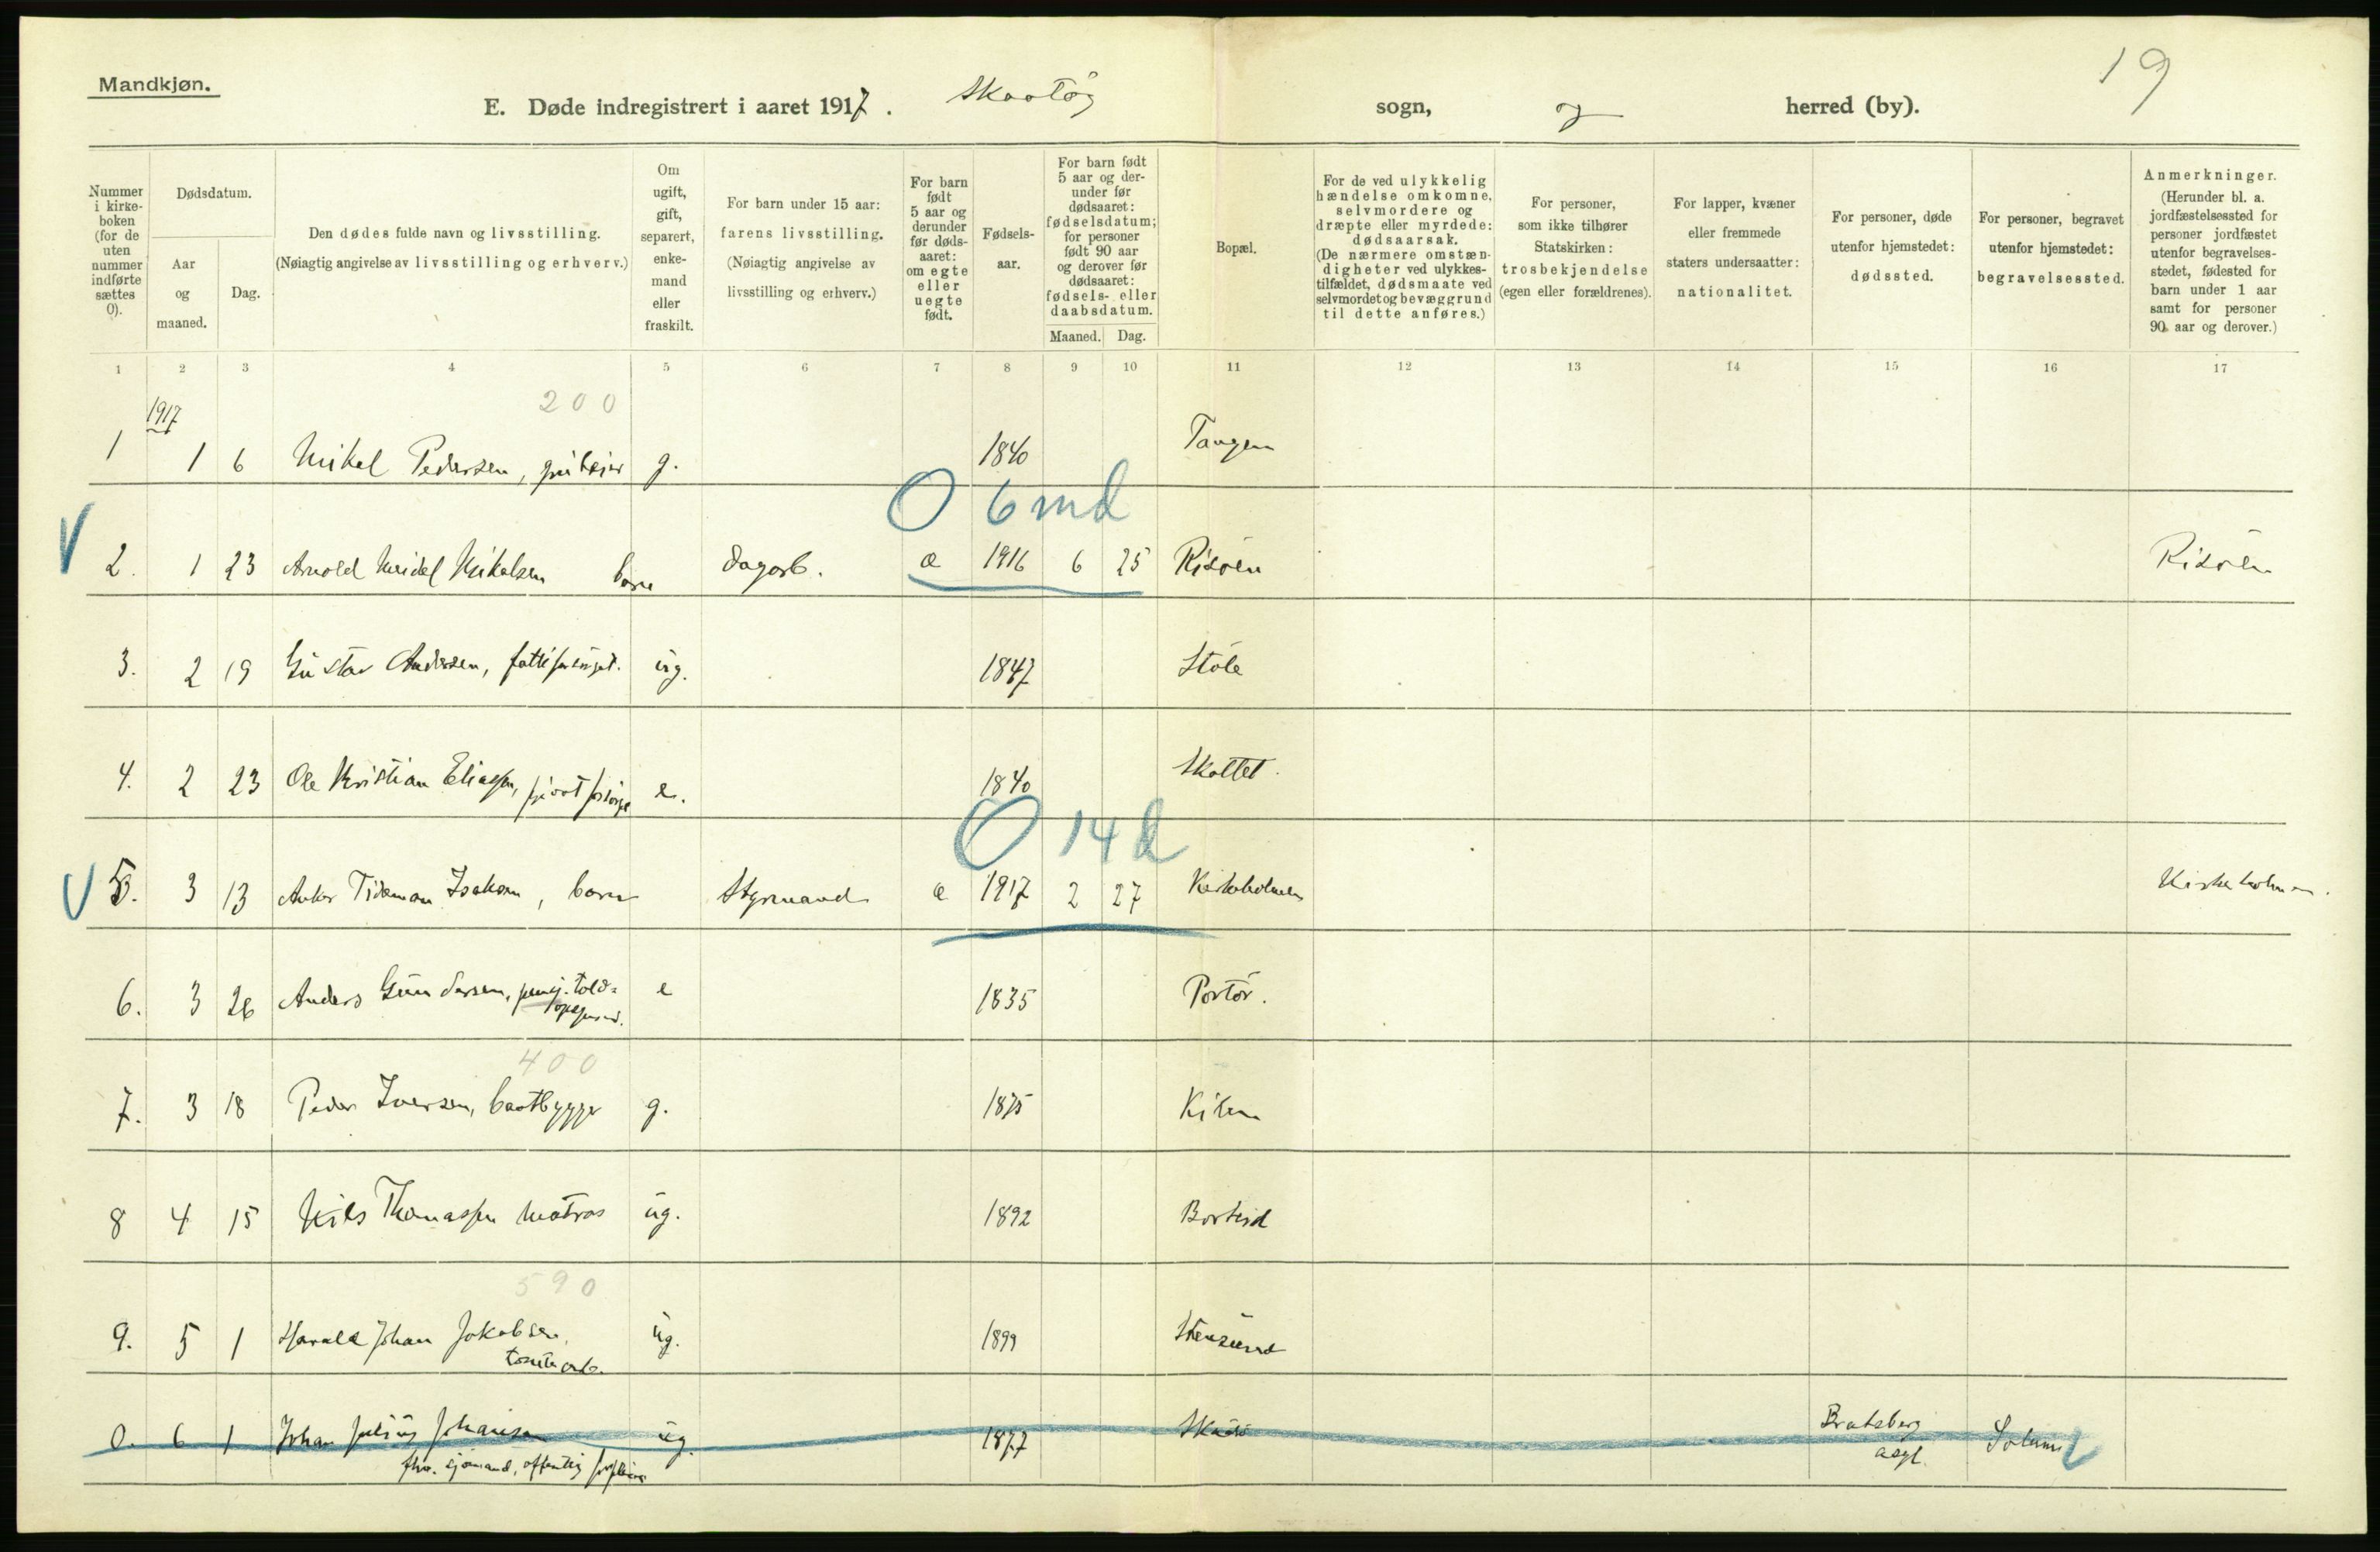 Mandkjøn.
19
E. Døde indregistrert i aaret 1917. Skaatøy sogn, og herred (by).
Nummer i kirkeboken (for de uten nummer indførte sættes 0).
Dødsdatum.
Aar og maaned.
Dag.
Den dødes fulde navn og livsstilling.
(Nøiagtig angivelse av livsstilling og erhverv.)
Om ugift, gift, separert, enkemand eller fraskilt.
For barn under 15 aar: farens livsstilling. (Nøiagtig angivelse av livsstilling og erhverv.)
For barn født 5 aar og derunder før dødsaaret: om egte eller uegte født.
Fødselsaar.
For barn født 5 aar og derunder før dødsaaret: fødselsdatum; for personer født 90 aar og derover før dødsaaret: fødsels- eller daabsdatum.
Maaned. Dag.
Bopæl.
For de ved ulykkelig hændelse omkomne, selvmordere og dræpte eller myrdede: dødsaarsak. (De nærmere omstændigheter ved ulykkestilfældet, dødsmaate ved selvmordet og bevæggrund til dette anføres.)
For personer, som ikke tilhører Statskirken: trosbekjendelse (egen eller forældrenes).
For lapper, kvæner eller fremmede staters undersaatter: nationalitet.
For personer, døde utenfor hjemstedet: dødssted.
For personer, begravet utenfor hjemstedet: begravelsessted.
Anmerkninger. (Herunder bl. a. jordfæstelsessted for personer jordfæstet utenfor begravelsesstedet, fødested for barn under 1 aar samt for personer 90 aar og derover.)
1 2 3 4 5 6 7 8 9 10 11 12 13 14 15 16 17
1917
200
1 1 6 Mikal Pedersen, g. 1840 Tangen
0 6 md
2. 1 23 Arnold Meidel Mikalsen barn dagarb. e 1916 6 25 Risöen Risöen
3. 2 19 Gustav Andersen, fattiforsörget. ug. 1847 Stöle
4. 2 23 Ole Kristian Eliassen, e. 1840 Skottet
0 14 d
5. 3 13 Anker Tideman Isaksen, barn Styrmand e 1917 2 27 Kirkeholmen Kirkeholmen.
6. 3 26 Anders Gundersen, pensj. told= e 1835 Portör.
400
7. 3 18 Peder Iversen, baatbygger g. 1875 Kilen
8 4 15 Nils Thomassen matros ug. 1892 Borteid
590
9. 5 1 Harald Johan Jakobsen, ug. 1899 Stensund
tomtearb.
0. 6 1 Johan Julius Johansen ug. 1877 Skaatö Bratsberg Solum
fhv. sjömand, offentlig forpleiet asyl.